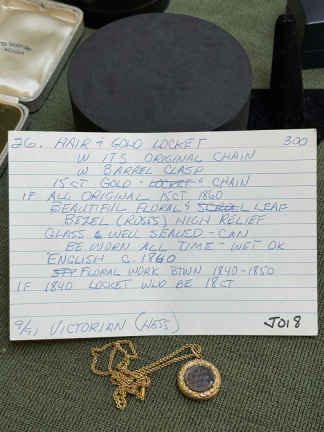 26. HAIR + GOLD LOCKET 300
W ITS ORIGINAL CHAIN
W BARREL CLASP
15CT GOLD - LOCKET + CHAIN
IF ALL ORIGINAL 15CT 1860
BEAUTIFUL FLORAL & SCROLL LEAF
BEZEL (ROSES) HIGH RELIEF
GLASS & WELL SEALED - CAN
BE WORN ALL TIME - WET OK
ENGLISH C. 1860
FLORAL WORK BTWN 1840-1850
IF 1840 LOCKET WLD BE 18CT
VICTORIAN
JO18